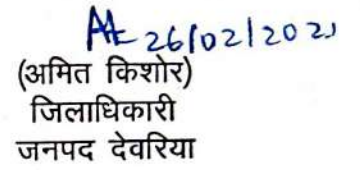 26/02/2021
(अमित किशोर)
जिलाधिकारी
जनपद देवरिया